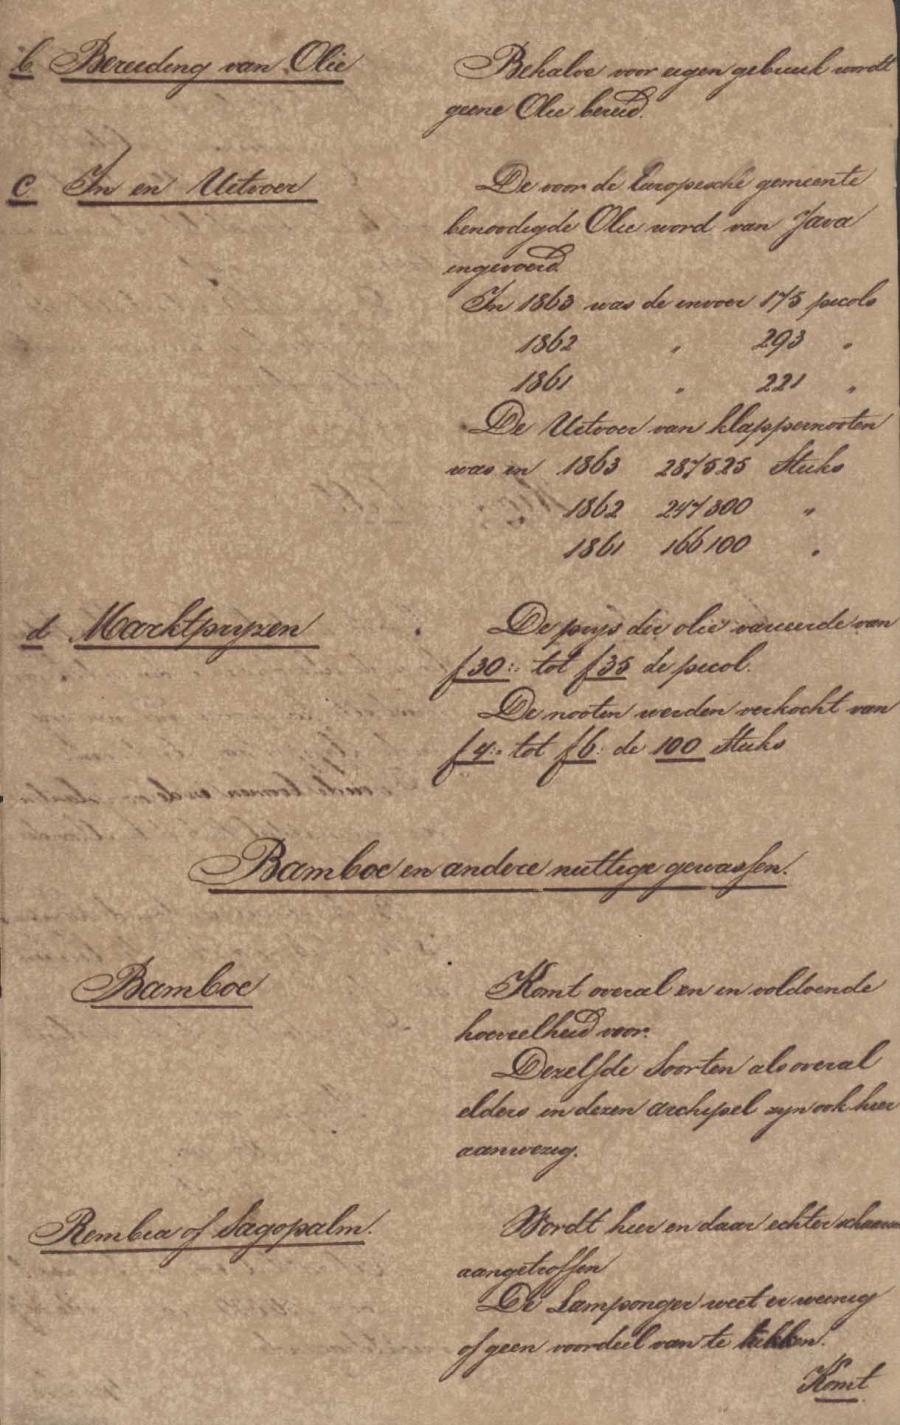 b Bereiding van Olie
Behalve voor eigen gebruik wordt
geene Olie bereid.
c In en Uitvoer
De voor de Europesche gemeente
benoodigde Olie word van Java
ingevoerd.
In 1863 was de invoer 175 picols
1862 " 293 "
1861 " 221 "
De Uitvoer van klappernooten
was in 1863 287525 Stuks
1862 247300 "
1861 166100 "
d Marktpryzen
De prys die olie varieerde van
f 30:- tot f 35 de picol.
De nooten werden verkocht van
f 4:- tot f 6: de 100 Stuks
Bamboe en andere nuttige gewassen.
Bamboe
Komt overal en in voldoende
hoeveelheid voor.
Dezelfde Soorten als overal
elders in dezen archipel zyn ook hier
aanwezig.
Rembia of Sagopalm.
Wordt hier en daar echter schaars
aangetroffen
De Lamponger weet er weinig
of geen voordeel van te trekken.
Komt